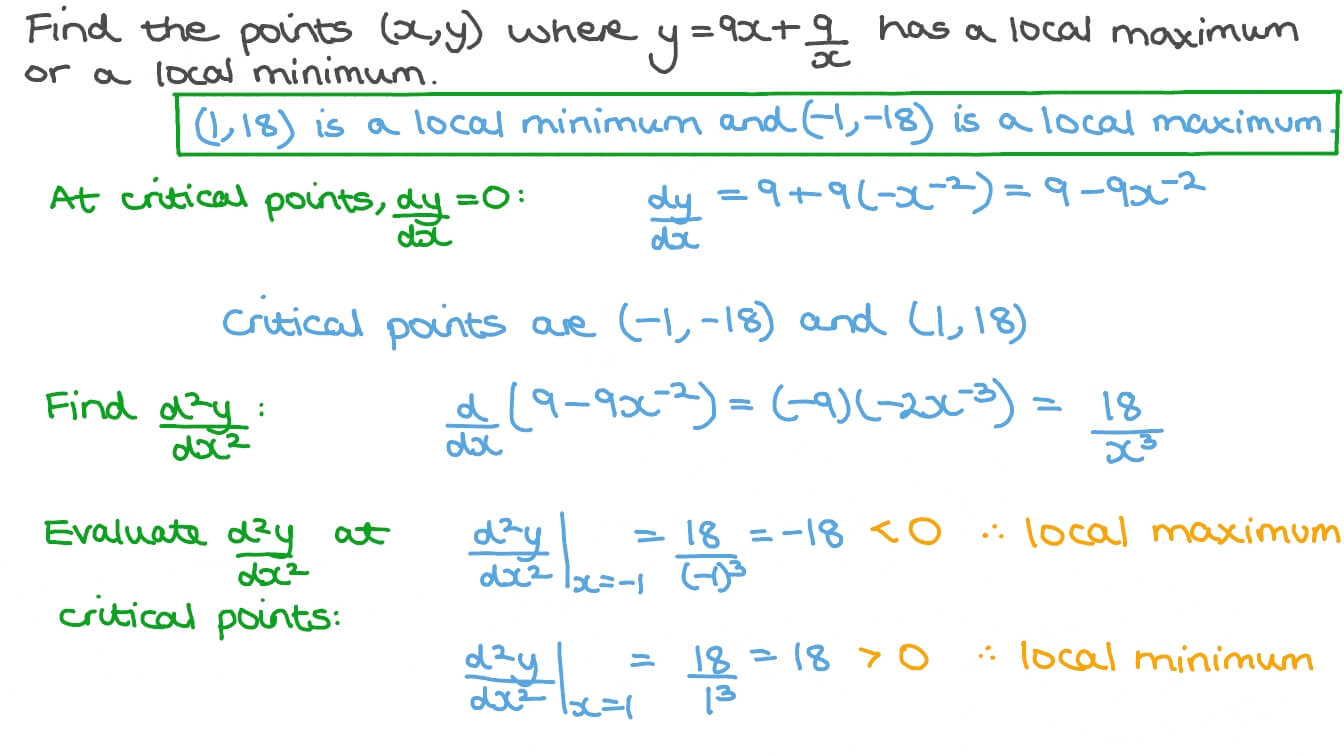 Find the points (x,y) where y = 9x + 9/x has a local maximum
or a local minimum.
(1,18) is a local minimum and (-1,-18) is a local maximum.
At critical points, dy/dx = 0: dy/dx = 9 + 9(-x⁻²) = 9 - 9x⁻²
Critical points are (-1,-18) and (1,18)
Find d²y/dx² : d/dx (9 - 9x⁻²) = (-9)(-2x⁻³) = 18/x³
Evaluate d²y/dx² at d²y/dx² |x=-1 = 18/(-1)³ = -18 < 0 ∴ local maximum
critical points:
d²y/dx² |x=1 = 18/1³ = 18 > 0 ∴ local minimum